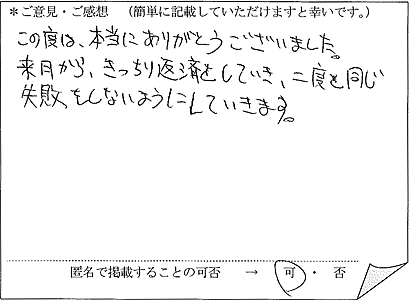 ＊ご意見・ご感想　（簡単に記載していただけますと幸いです。）
この度は、本当にありがとうございました。
来月から、きっちり返済をしていき、二度と同じ
失敗をしないようにしていきます。
匿名で掲載することの可否　→　可　・　否